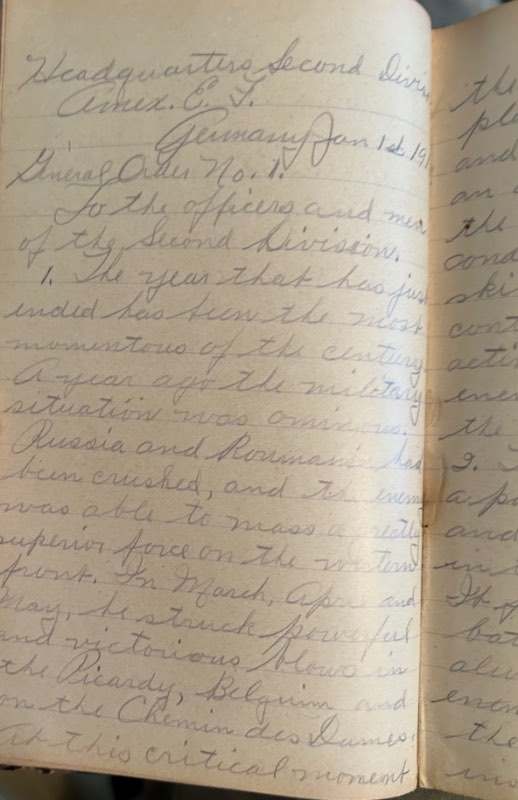 Headquarters Second Divis
Amex. E. F.
Germany Jan 1st, 191
General Order No. 1.
To the officers and men
of the Second Division.
1. The year that has just
ended has been the most
momentous of the century
A year ago the military
situation was ominous.
Russia and Roumania has
been crushed, and the enemy
was able to mass a greatly
superior force on the western
front. In March, April and
May, he struck powerful
and victorious blows in
the Picardy, Belguim and
on the Chemin des Dames.
At this critical moment
the
pl
and
an
the
cond
ski
cont
acti
enem
the
2. T
a po
and
in
It of
bat
alw
enem
the
in